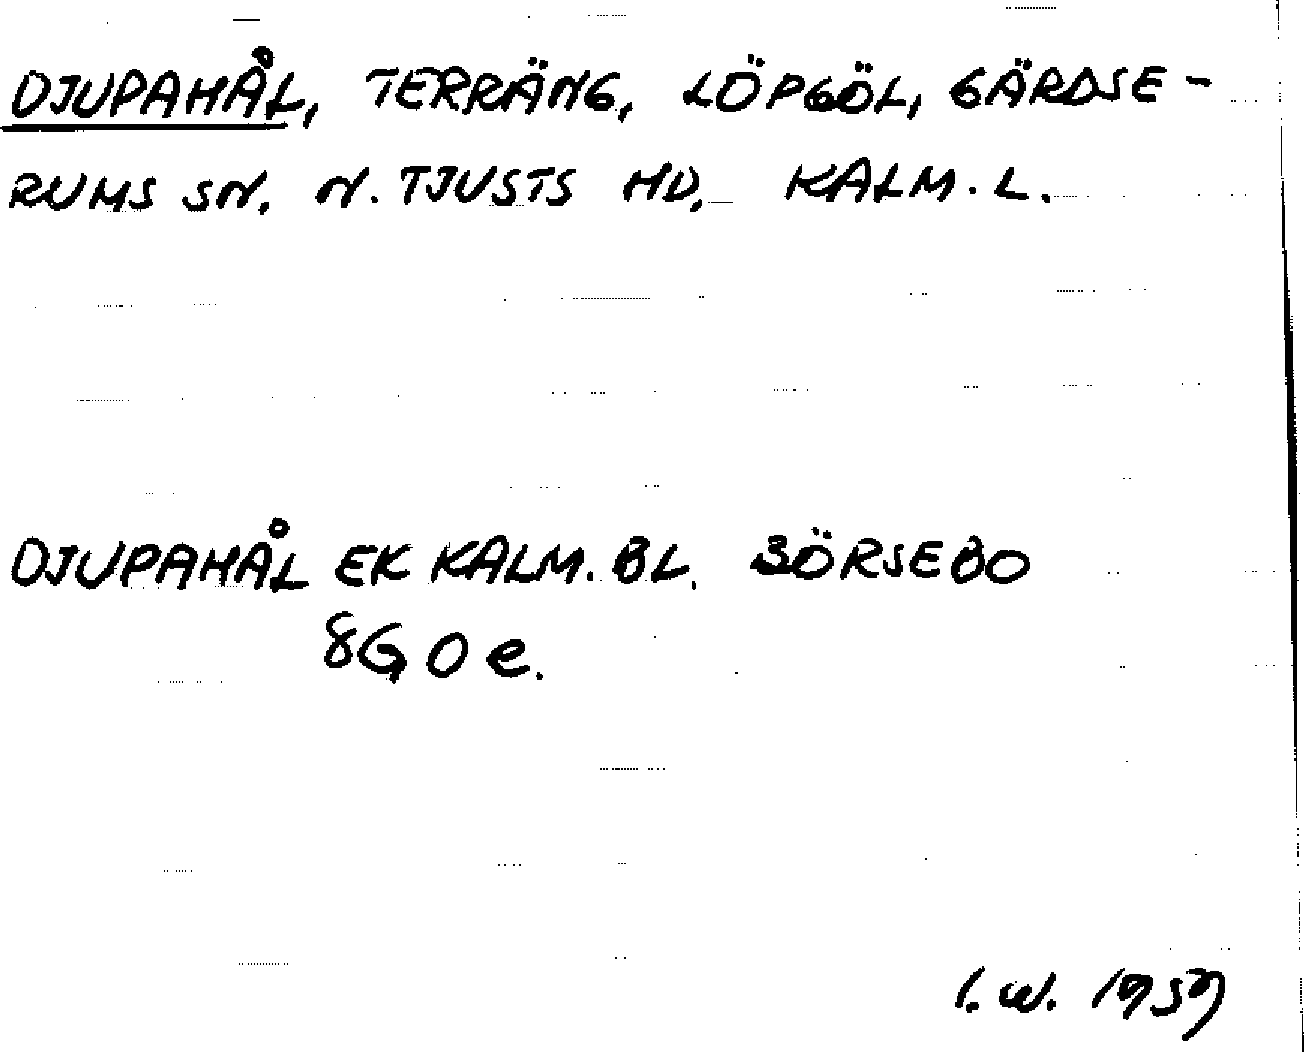 DJUPAHÅL, TERRÄNG, LÖPGÖL, GÄRDSE-
RUMS SN. N. TJUSTS HD. KALM. L.
DJUPAHÅL EK KALM. BL. BÖRSEBO
8G 0 e.
I. W. 1959